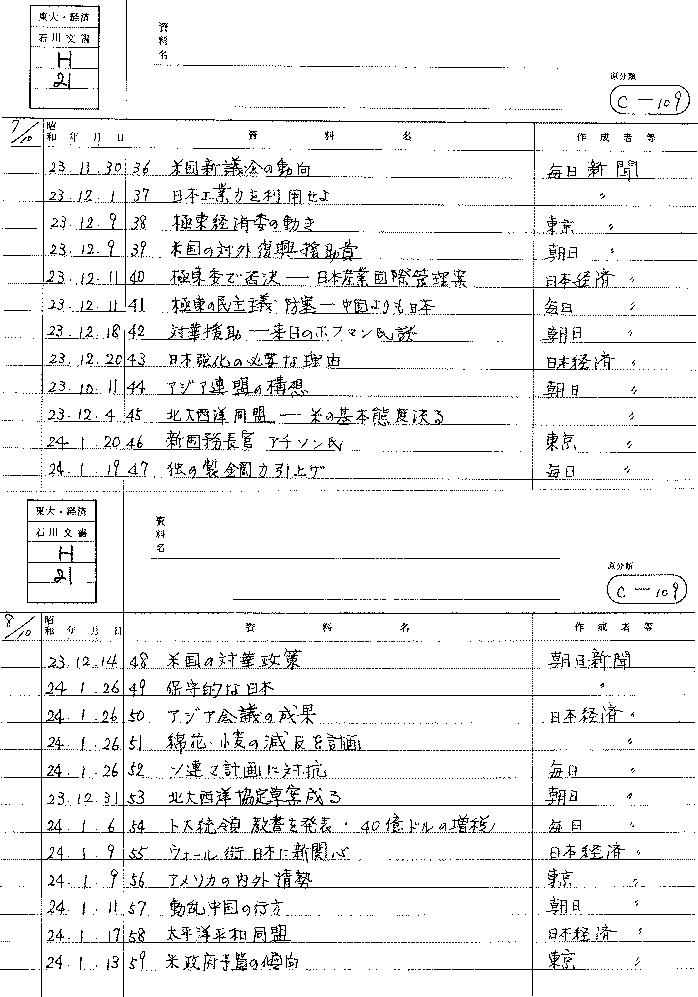 東大・経済
石川文書
H
21
資料名
原分類
C-109
7/10
昭和 年 月 日 資 料 名 作 成 者 等
23. 11. 30 36 米国新議会の動向 毎日新聞
23. 12. 1 37 日本工業力を利用せよ 〃
23. 12. 9 38 極東経済委の動き 東京 〃
23. 12. 9 39 米国の対外復興援助費 朝日 〃
23. 12. 11 40 極東委で否決 ― 日本産業国際管理案 日本経済 〃
23. 12. 11 41 極東の民主主義防塞 ― 中国よりも日本 毎日 〃
23. 12. 18 42 対華援助 ― 来日のホフマン氏談 朝日 〃
23. 12. 20 43 日本強化の必要な理由 日本経済 〃
23. 10. 11 44 アジア連盟の構想 朝日 〃
23. 12. 4 45 北大西洋同盟 ― 米の基本態度決る 〃
24. 1. 20 46 新国務長官 アチソン氏 東京 〃
24. 1. 19 47 独の製金岡力引上げ 毎日 〃
東大・経済
石川文書
H
21
資料名
原分類
C-109
8/10
昭和 年 月 日 資 料 名 作 成 者 等
23. 12. 14 48 米国の対華政策 朝日新聞
24. 1. 26 49 保守的な日本 〃
24. 1. 26 50 アジア会議の成果 日本経済 〃
24. 1. 26 51 綿花・小麦の減反を計画 〃
24. 1. 26 52 ソ連マ計画に対抗 毎日 〃
23. 12. 31 53 北大西洋協定草案成る 朝日 〃
24. 1. 6 54 ト大統領 教書を発表・40億ドルの増税 毎日 〃
24. 1. 9 55 ウォール街 日本に新関心 日本経済 〃
24. 1. 9 56 アメリカの内外情勢 東京 〃
24. 1. 11 57 動乱中国の行方 朝日 〃
24. 1. 17 58 太平洋平和同盟 日本経済 〃
24. 1. 13 59 米政府予算の傾向 東京 〃